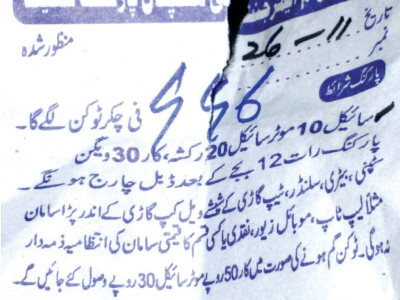 منظور شدہ
تاریخ 26-11
نمبر
پارکنگ شرائط
فی چکر ٹوکن لگے گا۔
سائیکل 10 موٹر سائیکل 20 رکشہ، کار 30 ویگن
پارکنگ رات 12 بجے کے بعد ڈبل چارج ہونگے۔
کنجی، بیٹری، سلنڈر، ٹیپ گاڑی کے شیشے ویل کپ گاڑی کے اندر پڑا سامان
مثلاً لیپ ٹاپ، موبائل زیور، نقدی یا کسی قسم کا قیمتی سامان کی انتظامیہ ذمہ دار
نہ ہوگی۔ ٹوکن گم ہونے کی صورت میں کار 50 روپے موٹر سائیکل 30 روپے وصول کئے جائیں گے۔